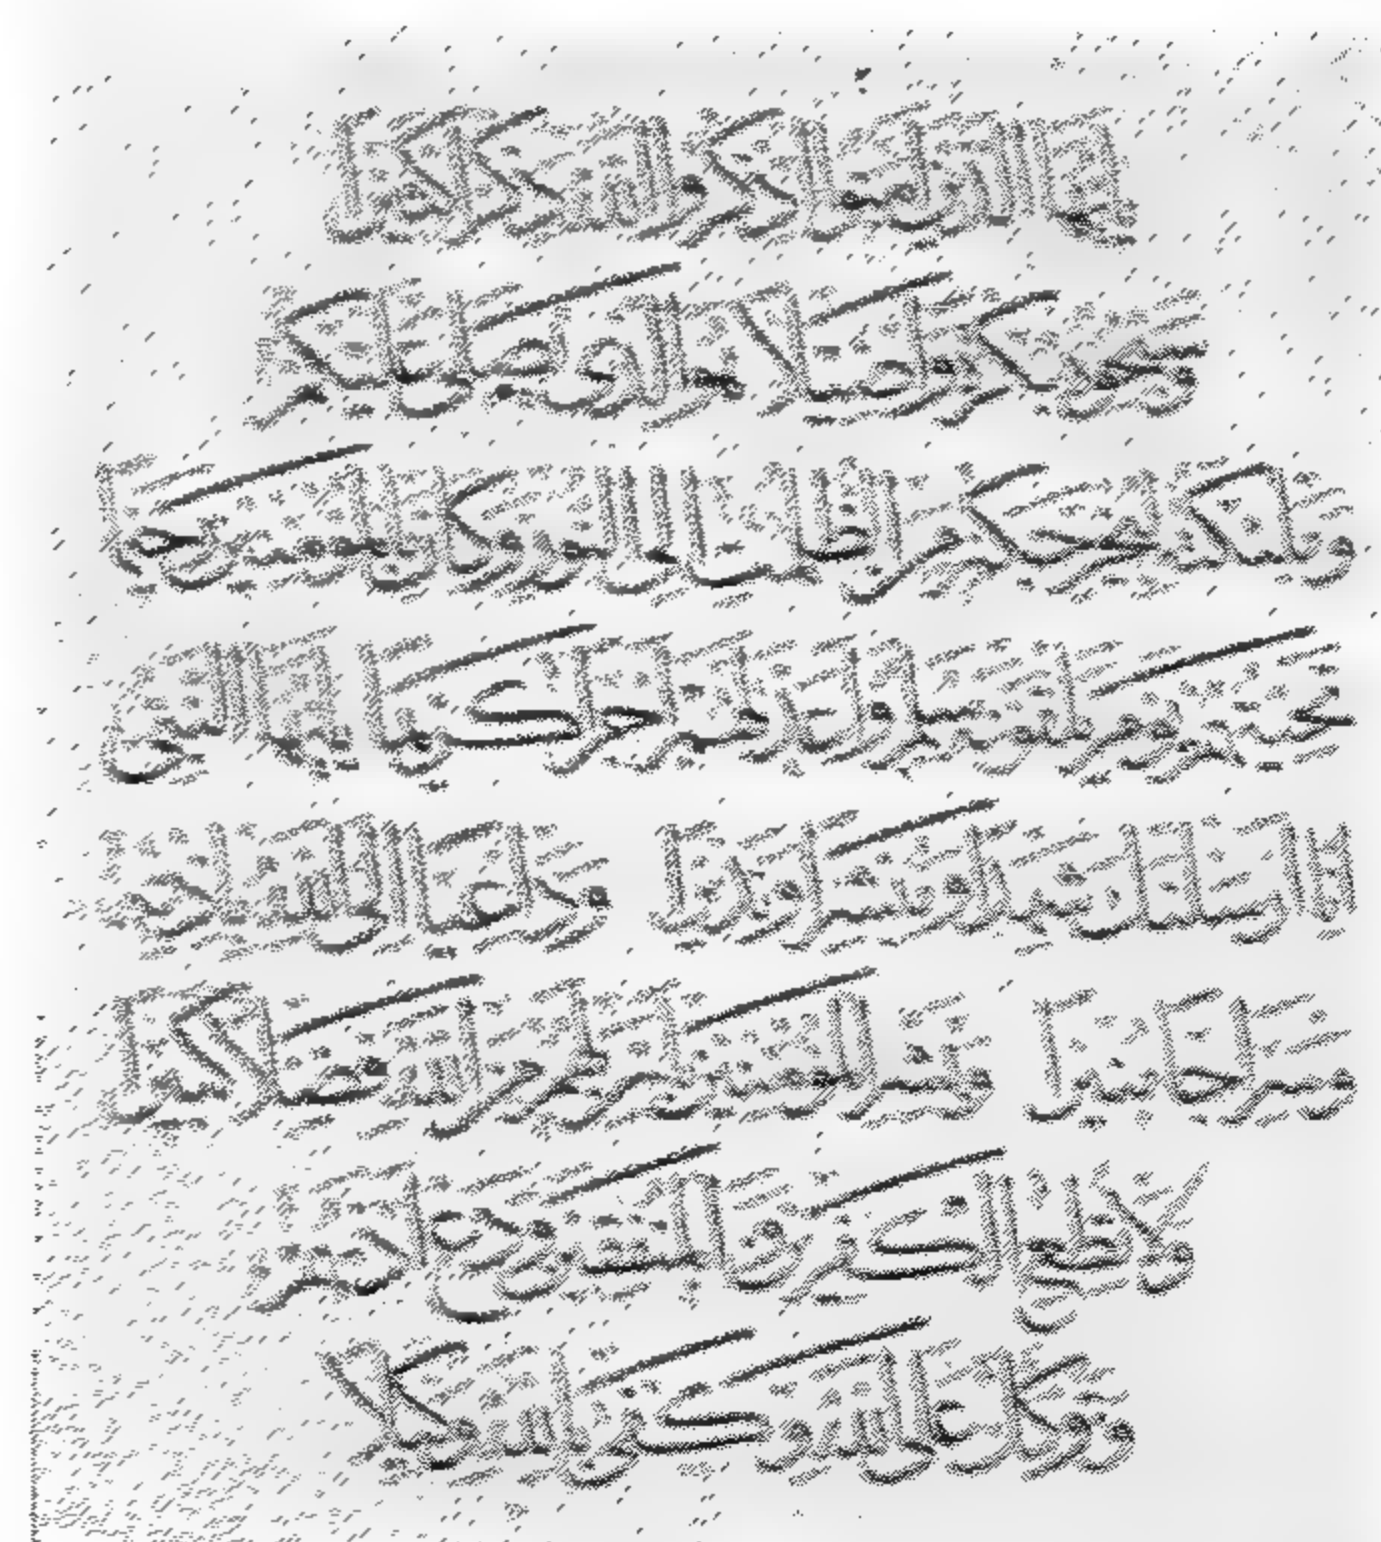 يا أيها الذين آمنوا اذكروا الله ذكرا كثيرا
وسبحوه بكرة وأصيلا هو الذي يصلي عليكم
وملائكته ليخرجكم من الظلمات إلى النور وكان بالمؤمنين رحيما
تحيتهم يوم يلقونه سلام وأعد لهم أجرا كريما يا أيها النبي
إنا أرسلناك شاهدا ومبشرا ونذيرا وداعيا إلى الله بإذنه
وسراجا منيرا وبشر المؤمنين بأن لهم من الله فضلا كبيرا
ولا تطع الكافرين والمنافقين ودع أذاهم
وتوكل على الله وكفى بالله وكيلا